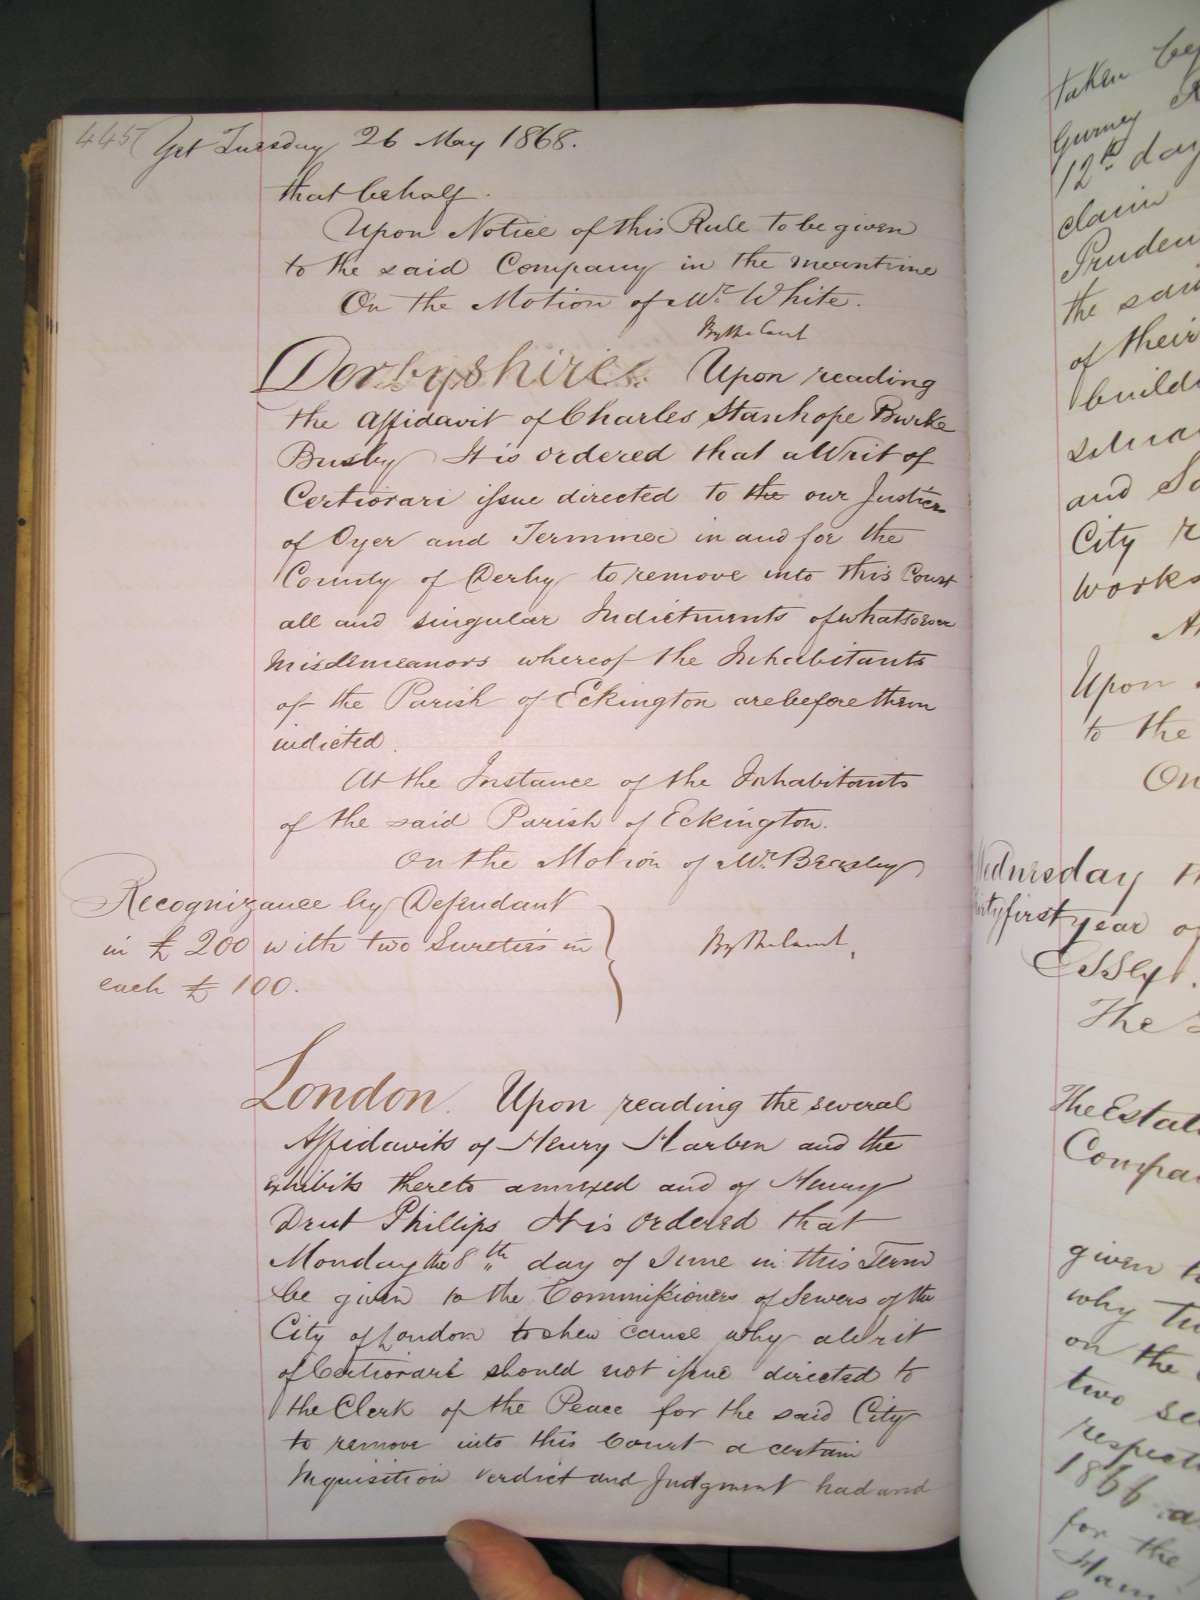 445
Yet Tuesday 26 May 1868.
that behalf.
Upon Notice of this Rule to be given
to the said Company in the meantime
On the Motion of Mr. White.
By the Court
Derbyshire. Upon reading
the Affidavit of Charles Stanhope Burke
Busby It is ordered that a Writ of
Certiorari issue directed to the our Justices
of Oyer and Terminer in and for the
County of Derby to remove into this Court
all and singular Indictments of whatsoever
Misdemeanors whereof the Inhabitants
of the Parish of Eckington are before them
indicted.
At the Instance of the Inhabitants
of the said Parish of Eckington.
On the Motion of Mr. Beasley
Recognizance by Defendant
in £200 with two Sureties in
each £100.
By the Court.
London. Upon reading the several
Affidavits of Henry Harben and the
exhibits thereto annexed and of Henry
Drut Phillips It is ordered that
Monday the 8th day of June in this Term
be given to the Commissioners of Sewers of the
City of London to shew cause why a Writ
of Certiorari should not issue directed to
the Clerk of the Peace for the said City
to remove into this Court a certain
Inquisition verdict and Judgment had and
taken
Gurney
12th day
claim
the
of their
and
City
works
Upon
to the
On
Wednesday
first year of
Essly.
The
The
given
why
on the
two
1866
for the